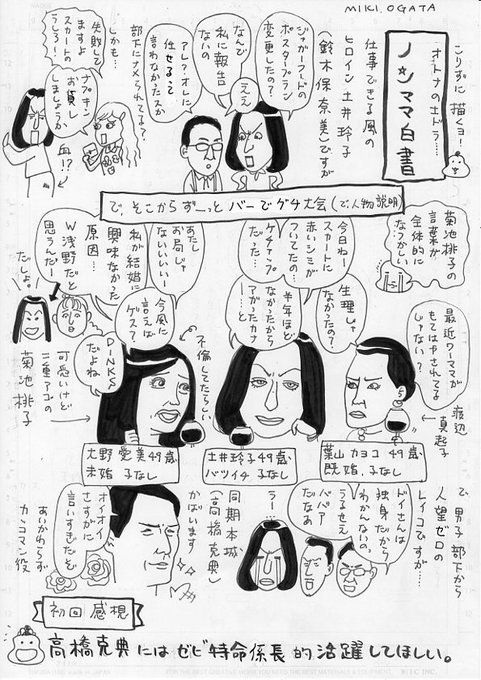 MIKI.OGATA
こりずに描くョ!
オトナの土ドラ…
ノンママ白書
仕事できる風の
ヒロイン土井玲子
(鈴木保奈美)ですが
ジャガーフードの
ポスタープラン
変更したの?
ええ
なんで
私に報告
ないの
アレ?アレに
任せるって
言わなかったスか
部下にナメられてる?
しかも…
失敗して
ますよ
スカートの
うしろ!
ナプキン
お貸し
しましょうか
血!?
で、そこからずーっとバーでグチ大会(で、人物説明)
菊池桃子の
言葉が
全体的に
なつかしい
最近ワーママが
もてはやされてる
じゃない?
渡辺
真起子
生理じゃ
なかったの?
今日ねー
スカートに
赤いシミが
ついてたの…
ケチャップ
だった…
半年ほど
なかったから
アガったカナ
ー…と
不倫してたらしい
あたし
お局じゃ
ないいいいー
今風に
言えば
ゲス?
私が結婚に
興味なかった
原因…
W浅野だと
思うんだー
だしょ。
DINKS
だよね
可愛いけど
二重アゴの
菊池桃子
葉山カヨコ 49歳
既婚、子なし
土井玲子49歳
バツイチ 子なし
大野愛美49歳
未婚 子なし
で、男子部下から
人望ゼロの
レイコですが…
ドイさんは
独身だから
わかんないの。
うるせえ
ババア
だなあ
うー
同期本城
(高橋克典)
かばいます
オイオイ
さすがに
言いすぎだぞ
あいかわらず
カッコマン役
初回感想
高橋克典にはゼビ特命係長的活躍してほしい。